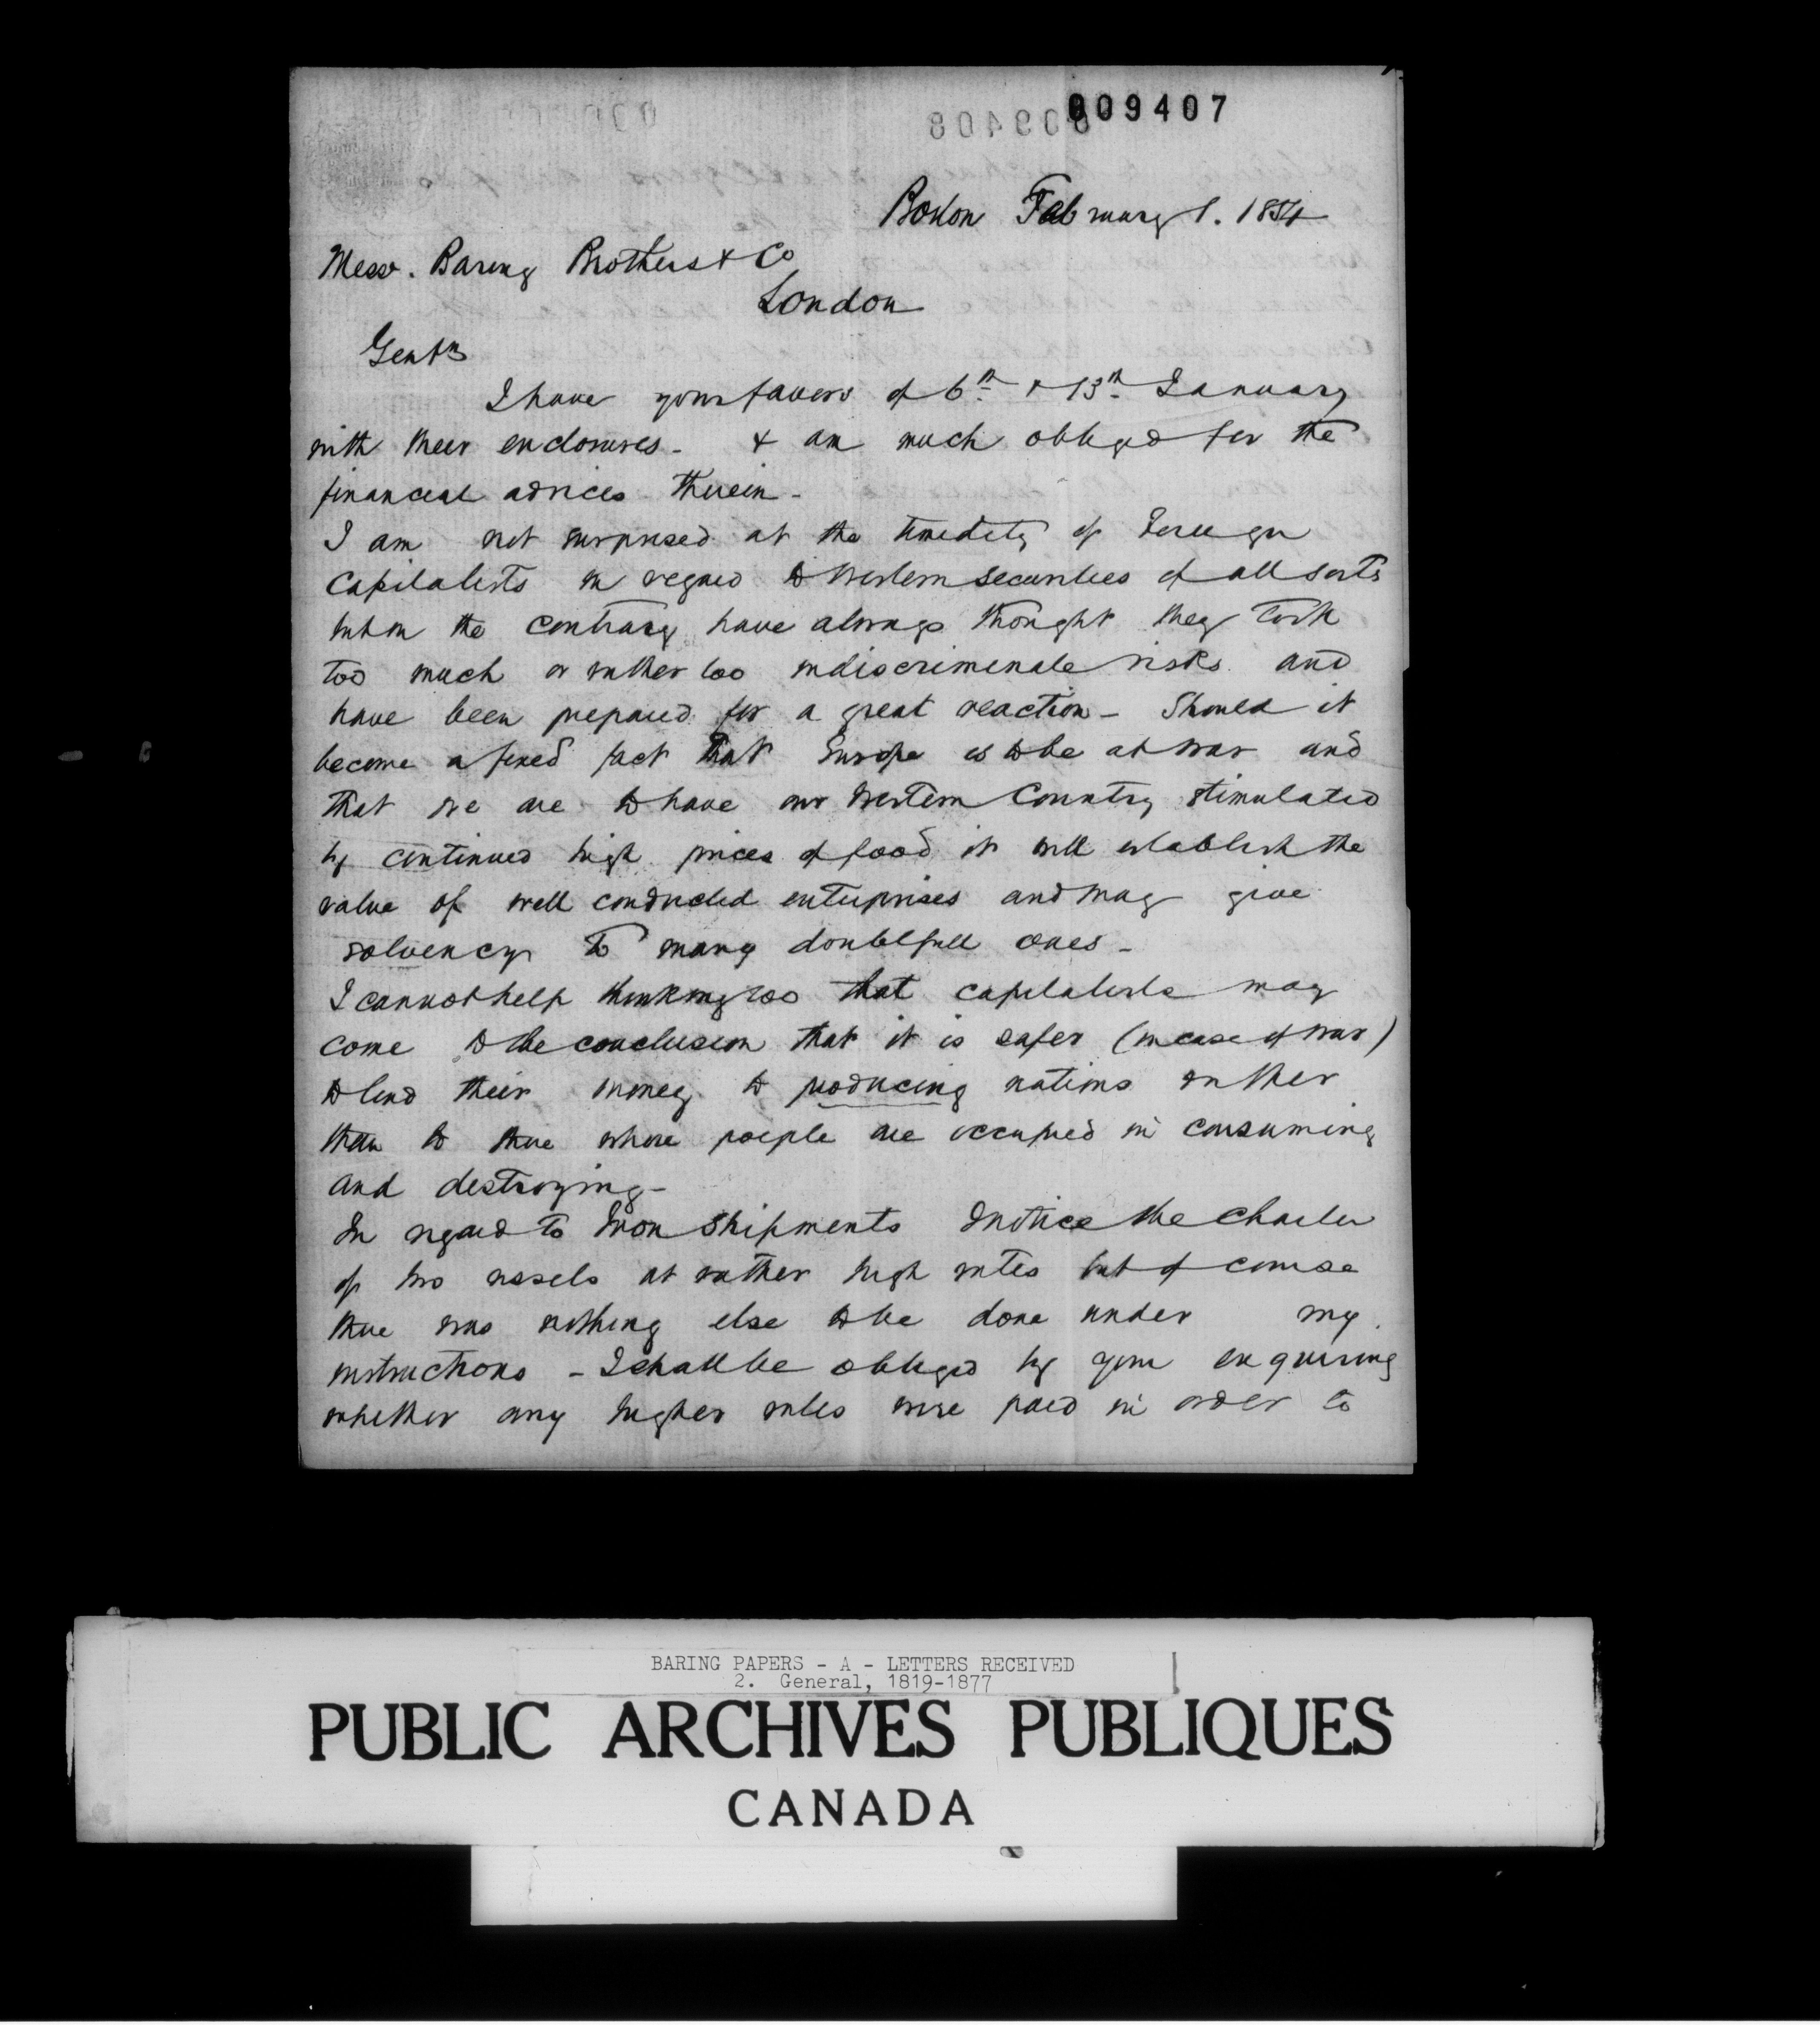 009407
Boston February 1. 1854
Messr. Baring Brothers & Co
London
Gentn
I have your favors of 6th & 13th January
with their enclosures - & am much obliged for the
financial advices therein -
I am not surprised at the timidity of Foreign
Capitalists in regard to Western Securities of all sorts
but on the contrary have always thought they took
too much or rather too indiscriminate risks and
have been prepared for a great reaction - Should it
become a fixed fact that Europe is to be at War and
that we are to have our Western Country stimulated
by continued high prices of food it will establish the
value of well conducted enterprises and may give
solvency to many doubtfull ones -
I cannot help thinking too that capitalists may
come to the conclusion that it is safer (in case of war)
to lend their money to producing nations rather
than to those whose people are occupied in consuming
and destroying -
In regard to Iron Shipments I notice the Charter
of two vessels at rather high rates but of course
there was nothing else to be done under my
instructions - I shall be obliged by your enquiring
whether any higher rates were paid in order to
BARING PAPERS - A - LETTERS RECEIVED
2. General, 1819-1877
PUBLIC ARCHIVES PUBLIQUES
CANADA